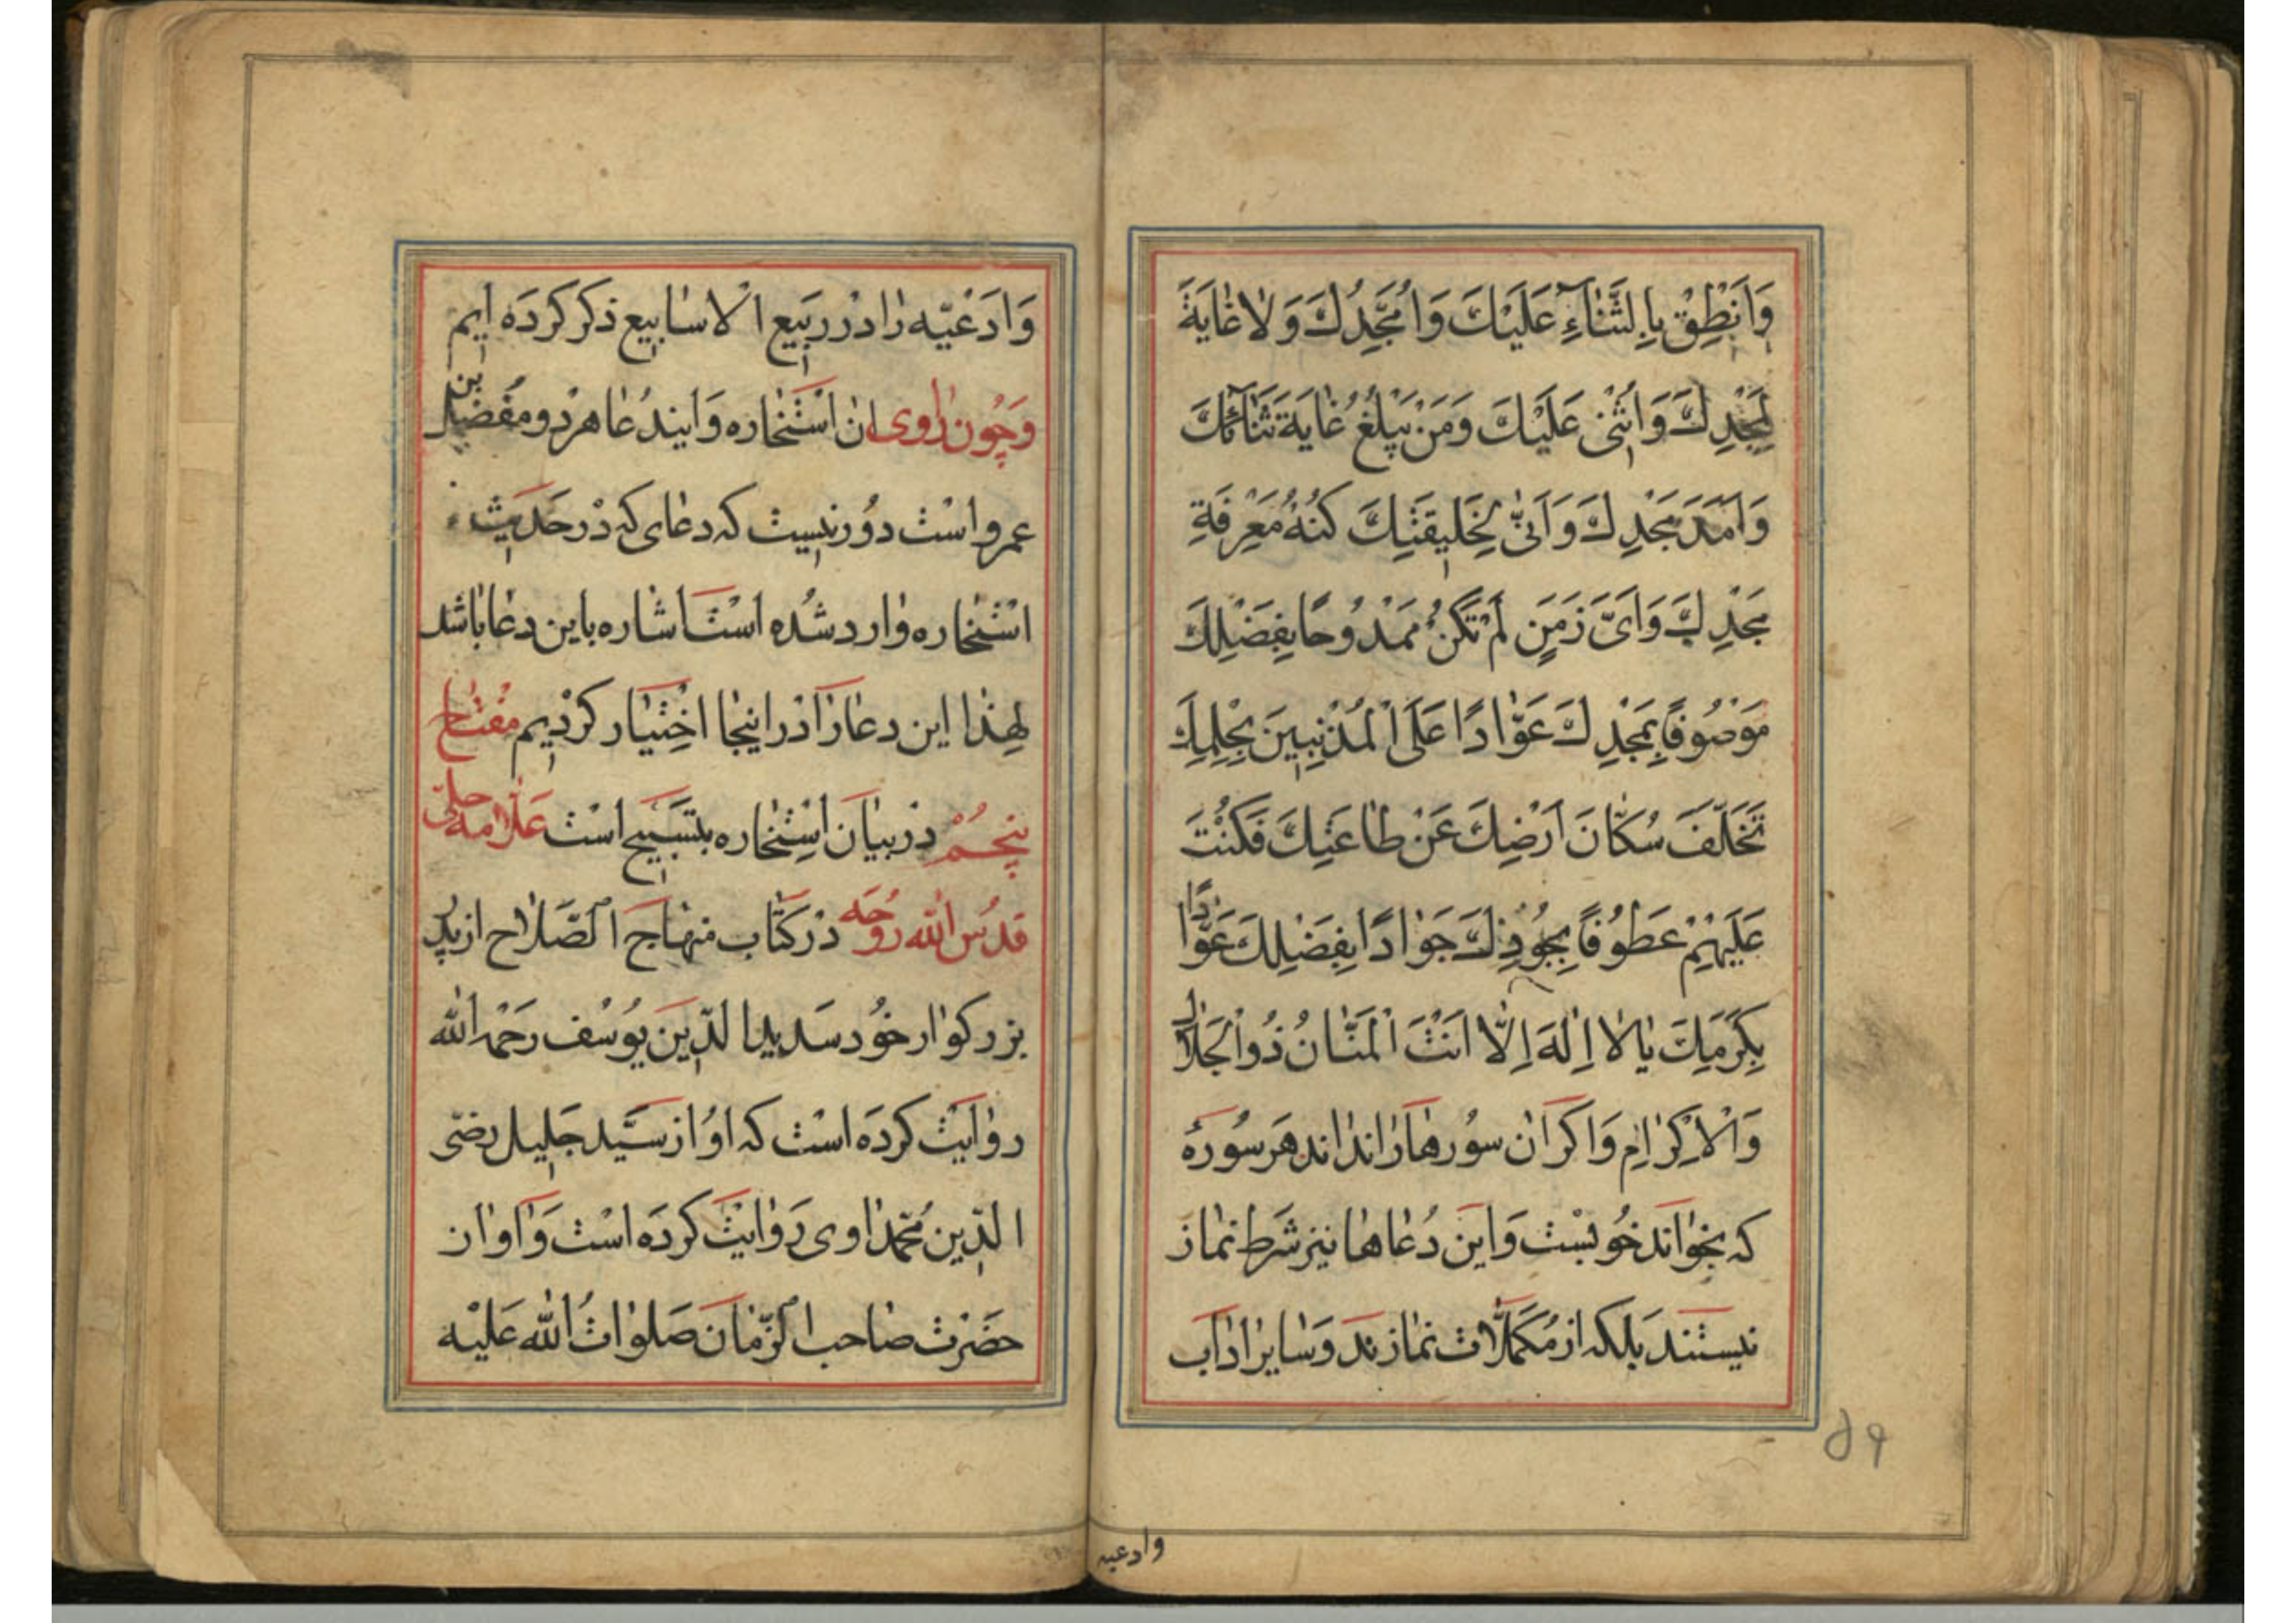 وَاَنْطِقْ بِالثَّنَاءِ عَلَيْكَ وَاُمَجِّدُكَ وَلَا غَايَةَ
لِمَجْدِكَ وَاُثْنِي عَلَيْكَ وَمَنْ يَبْلُغُ غَايَةَ ثَنَائِكَ
وَاَمَدَ مَجْدِكَ وَاَنّٰى لِخَلِيقَتِكَ كُنْهُ مَعْرِفَةِ
مَجْدِكَ وَاَيَّ زَمَنٍ لَمْ تَكُنْ مَمْدُوحًا بِفَضْلِكَ
مَوْصُوفًا بِمَجْدِكَ عَوَّادًا عَلَى الْمُذْنِبِينَ بِحِلْمِكَ
تَخَلَّفَ سُكَّانَ اَرْضِكَ عَنْ طَاعَتِكَ فَكُنْتَ
عَلَيْهِمْ عَطُوفًا بِجُودِكَ جَوَادًا بِفَضْلِكَ عَوَّادًا
بِكَرَمِكَ يَا لَا اِلٰهَ اِلَّا اَنْتَ الْمَنَّانُ ذُو الْجَلَالِ
وَالْاِكْرَامِ وَاكر ان سُورها را نداند هر سُوره
كه بخواند خوبست وَاين دُعاها نيز شرط نماز
نيستند بلكه از مُكمّلات نمازند وَساير اداب
٥٩
وادعيه
وَادَعْيّه را در رَبيع الاسابيع ذكر كردَه ايم
وَچُون راوى ان اسْتخاره وَايندُعا هردو مُفضّل بن
عمرو است دُور نيست كه دعاى كه دْر حَديث
استخاره وارد شُده است اشاره باين دعا باشد
لهِذا اين دعا را در اينجا اخْتيار كرديم مفْتاح
پنجُمْ در بيان استخاره بتسبيح است عَلّامه حلى
قدّس الله رُوحَه دْر كتاب منهاج الصّلاح از پدر
بزركوار خوُد سَديد الدّين يوُسُف رحمه الله
روايت كردَه است كه اوُ از سَيّد جَليل رضى
الدّين مُحمّد اوى رَوايت كردَه است وَاو از
حضَرت صاحب الزّمان صَلوات الله عَليْه